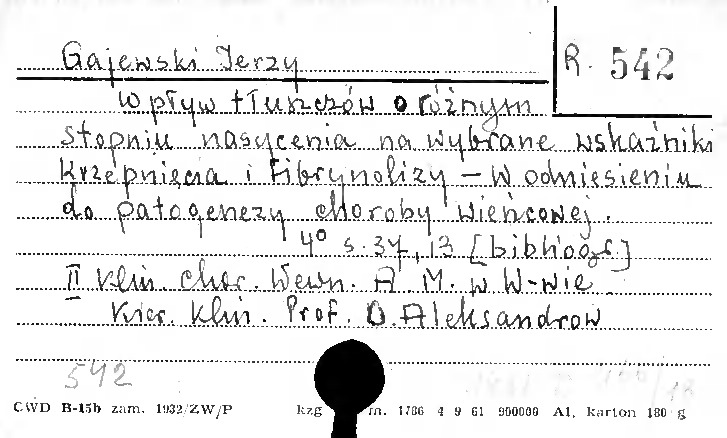 Gajewski Jerzy
R. 542
Wpływ tłuszczów o różnym
stopniu nasycenia na wybrane wskaźniki
krzepnięcia i fibrynolizy – w odniesieniu
do patogenezy choroby wieńcowej.
4° s. 37, 13 [bibliogr.]
II Klin. Chor. Wewn. A. M. w W-wie
Kier. Klin. Prof. D. Aleksandrow
542
CWD B-15b zam. 1932/ZW/P kzg m. 1786 4 9 61 900000 A1, karton 180 g